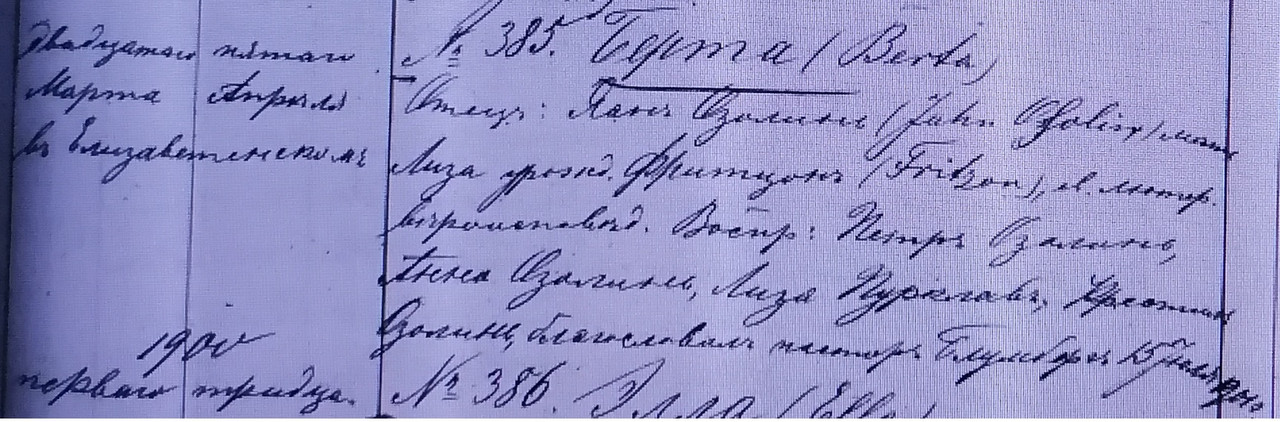 двадцатаго пятаго
Марта Апрѣля
въ Елизаветенскомъ
1900
перваго тридца-
№ 385. Берта (Berta)
Отецъ: Янъ Озолинъ (Jahn Ohsolin), мать
Лиза урожд. Фритцонъ (Fritzon), ев. лютер.
вѣроисповѣд. Воспр: Петръ Озолинь,
Анна Озолинь, Лиза Пурклавъ,
Озолинь, благословилъ пасторъ Блумбергъ 15
№ 386. Элла (Ella)